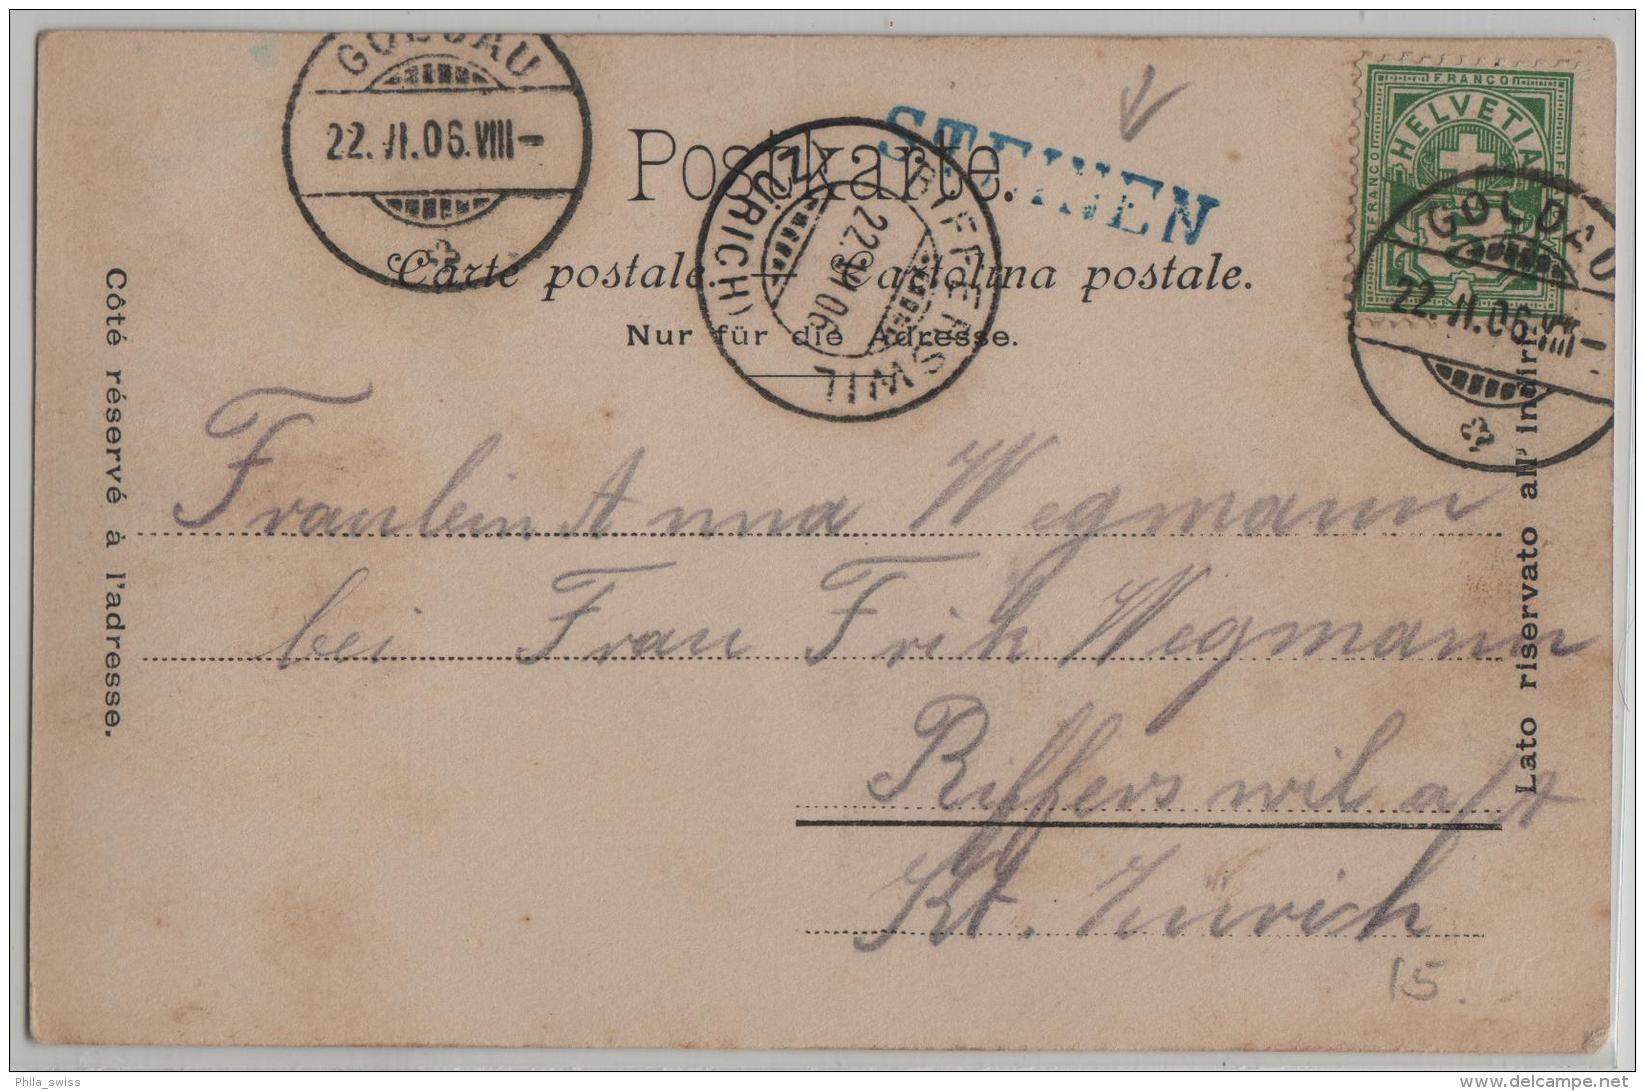 GOLDAU
22. VI. 06. VIII –
Postkarte.
STEINEN
FRANCO
HELVETIA
FRANCO
GOLDAU
22. VI. 06. VIII –
RIFFERSWIL
(ZÜRICH)
22. VI 06
Carte postale. — Cartolina postale.
Nur für die Adresse.
Côté réservé à l'adresse.
Lato riservato all' indiri
Fraulein Anna Wegmann
bei Frau Frik Wegmann
Rifferswil a/A
Kt. Zürich
15.
Phila_swiss
delcampe.net